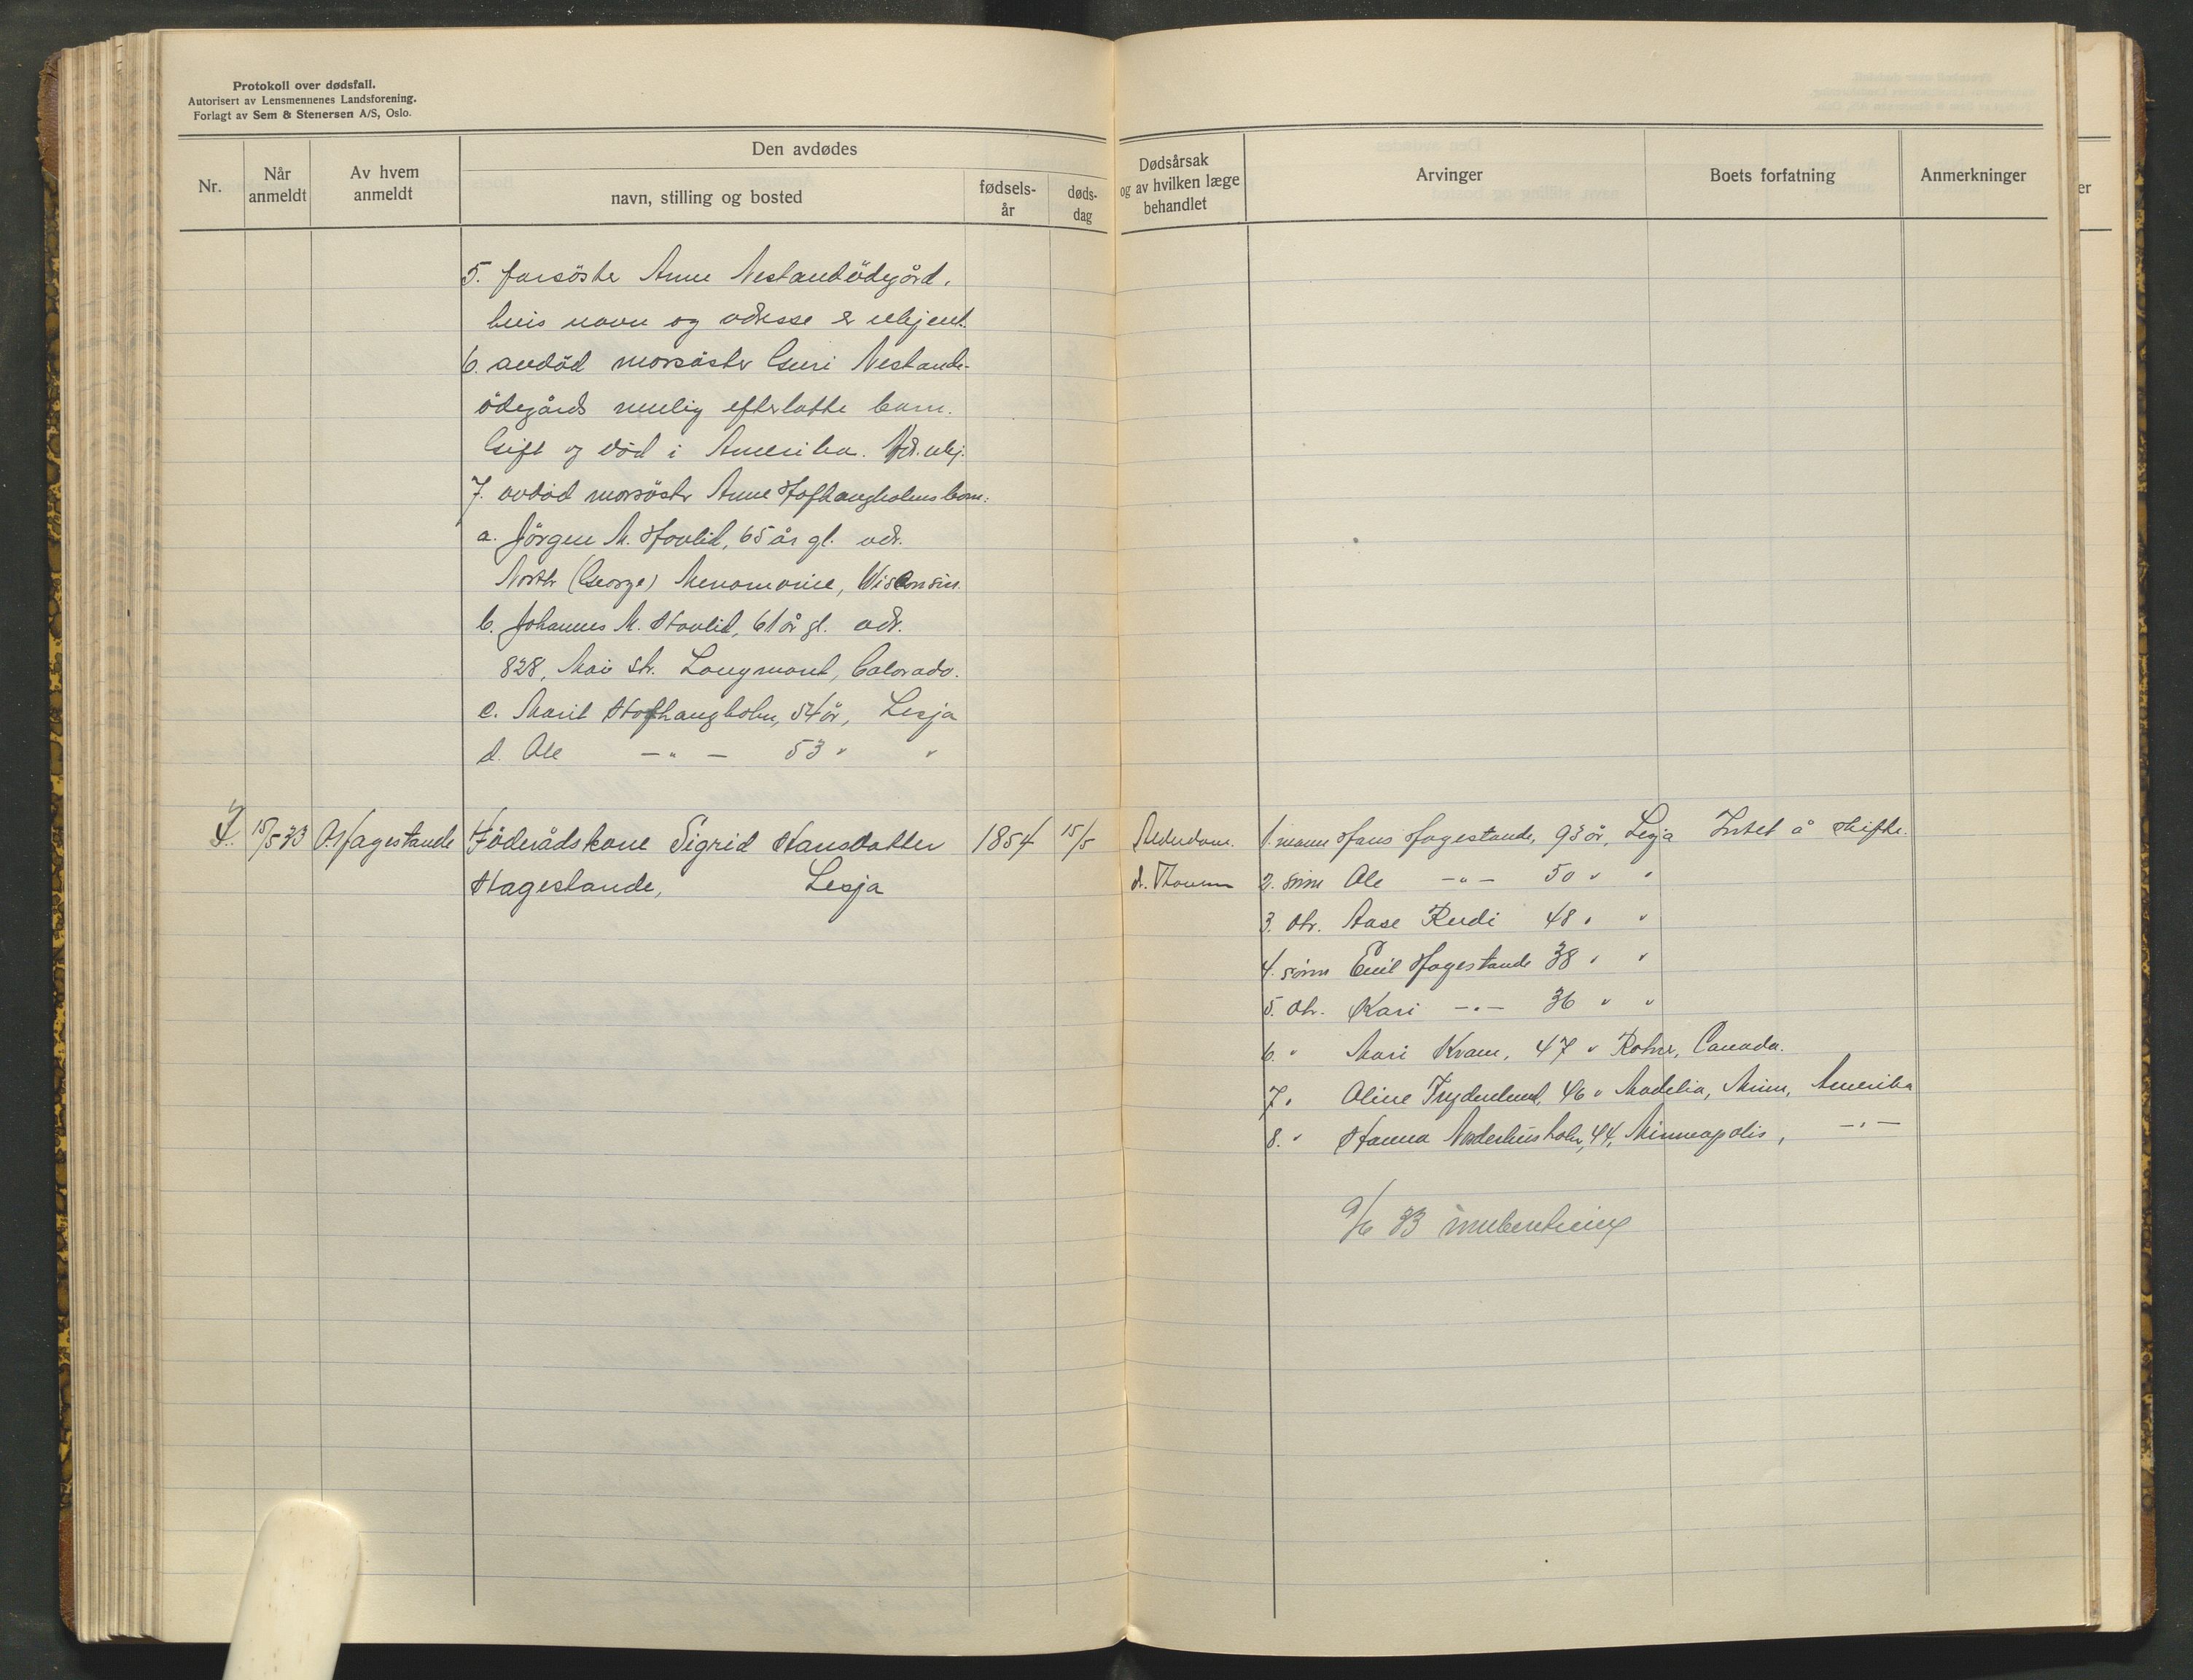 Protokoll over dødsfall.
Autorisert av Lensmennenes Landsforening.
Forlagt av Sem & Stenersen A/S, Oslo.
Nr.
Når anmeldt
Av hvem anmeldt
Den avdødes
navn, stilling og bosted
fødsels-år
døds-dag
Dødsårsak og av hvilken læge behandlet
Arvinger
Boets forfatning
Anmerkninger
5. farsöster Anne Nestandödegård,
hvis navn og adresse er ukjent.
6. avdöd morsöster Guri Nestande-
ödegårds mulig efterlatte barn.
Gift og död i Amerika. Adr. ukj.
7. avdöd morsöster Anne Hofthaugholms barn:
a. Jörgen M. Hovlid, 65 år gl. adr.
North (George) Menomonie, Wisconsin.
b. Johannes M. Hovlid, 61 år gl. adr.
828, Main Str. Longmont, Colorado.
c. Marit Hofthaugholm, 54 år, Lesja
d. Ole —"— 53 " "
4. 15/5 33 O. Hagestande Föderådskone Sigrid Hansdatter 1854 15/5 Alderdom. 1. mann Hans Hagestande, 93 år, Lesja Intet å skifte.
Hagestande, Lesja dr. 2. sönn Ole —"— 50 " "
3. dtr. Aase Rudi 48 " "
4. sönn Emil Hagestande 38 " "
5. dtr. Kari —"— 36 " "
6. " Mari Kvam, 47 " Canada.
7. " Oline Frydenlund, 46 " Madelia, Minn, Amerika
8. " Hanna Norderhusholm, 44, Minneapolis, —"—
9/6 33 innberetning